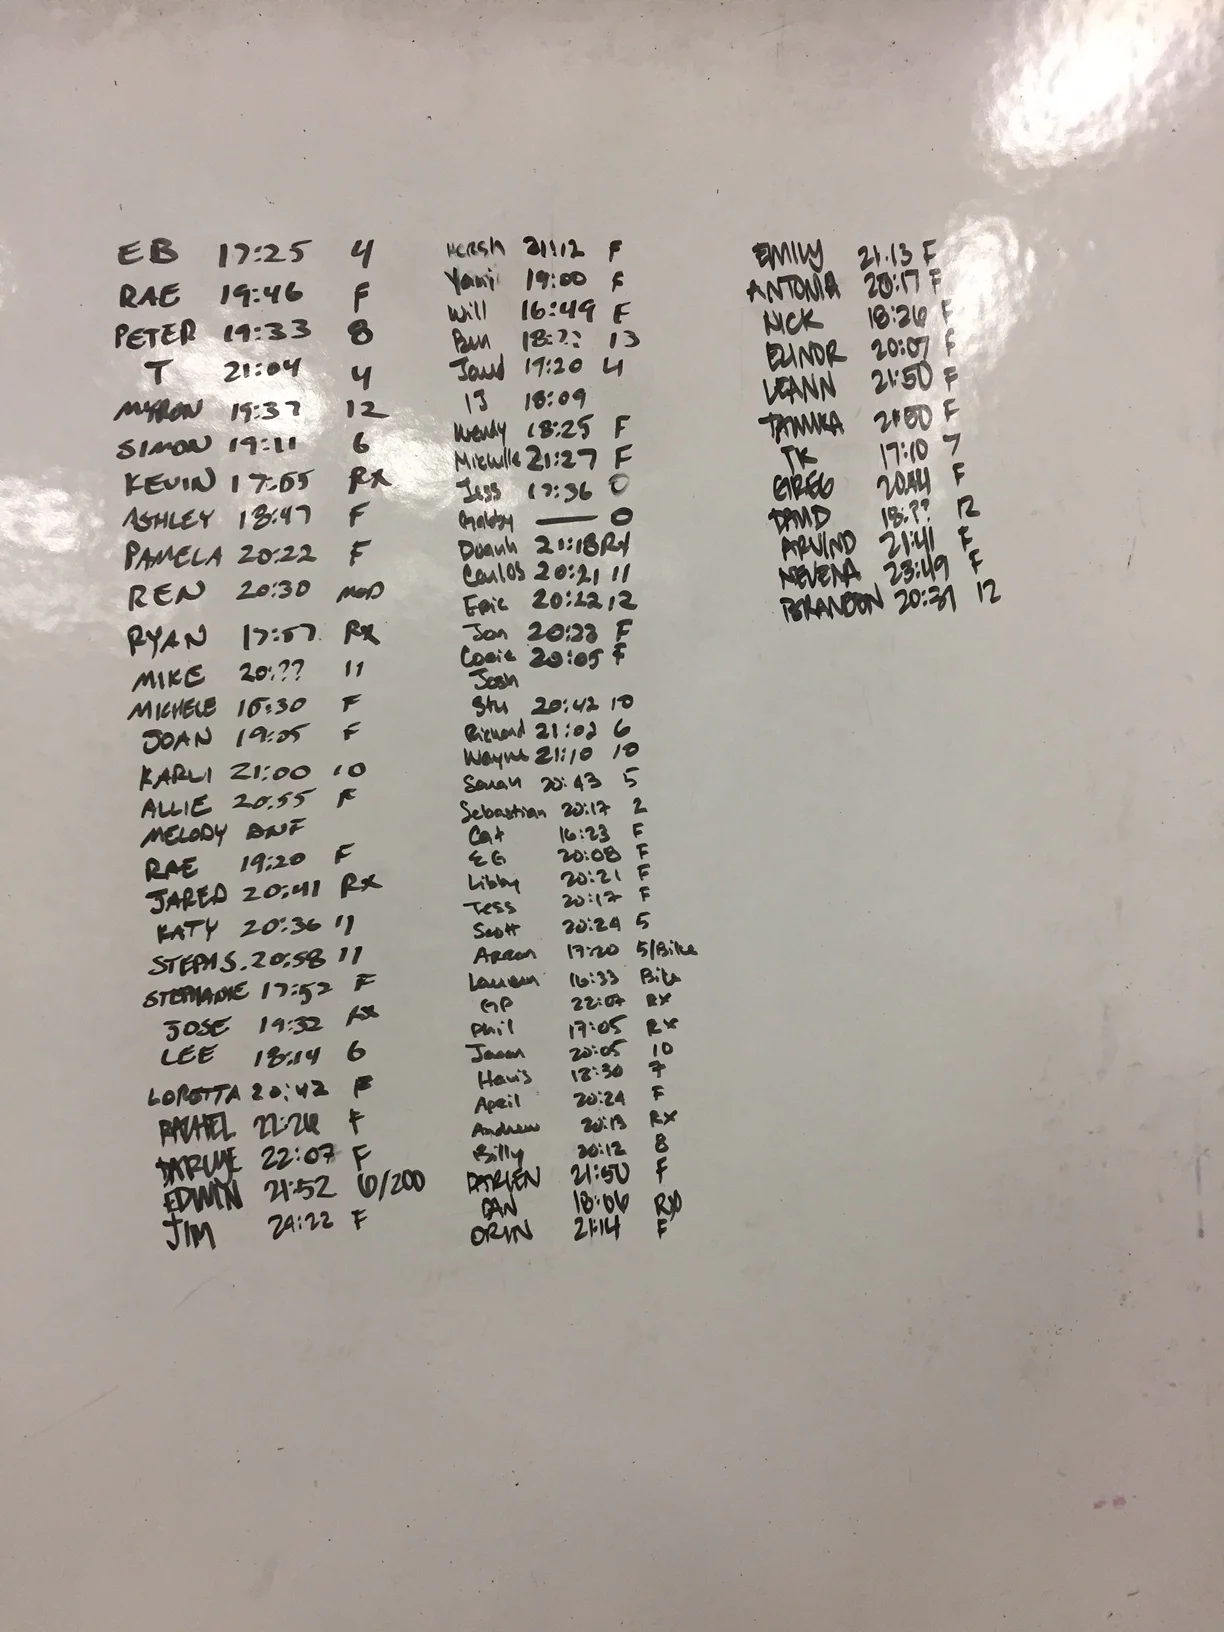 EB 17:25 4
RAE 19:46 F
PETER 19:33 8
T 21:04 4
MYRON 19:37 12
SIMON 19:11 6
KEVIN 17:55 RX
ASHLEY 18:47 F
PAMELA 20:22 F
REN 20:30 MOD
RYAN 17:57 RX
MIKE 20:?? 11
MICHELE F
JOAN 19:05 F
KARLI 21:00 10
ALLIE 20:55 F
MELODY DNF
RAE 19:20 F
JARED 20:41 RX
KATY 20:36 11
STEPH S. 20:58 11
STEPHANIE 17:52 F
JOSE 19:32 RX
LEE 18:14 6
LORETTA 20:42 F
RACHEL 22:26 F
22:07 F
EDWIN 21:52 6/200
JIM 24:22 F
Hersh 21:12 F
Yumi 19:00 F
Will 16:49 F
Ben 18:?? 13
19:20 4
IJ 18:09
Wendy 18:25 F
Michelle 21:27 F
Jess 17:36 0
Gabby — 0
21:18 RX
Carlos 20:21 11
Eric 20:22 12
Jon 20:23 F
20:05 F
Josh
Stu 20:42 10
Richard 21:02 6
Wayne 21:10 10
Sarah 20:43 5
Sebastian 20:17 2
Cat 16:23 F
EG 20:08 F
Libby 20:21 F
Tess 20:17 F
Scott 20:24 5
Arron 17:20 5/Bike
Lauren 16:33 Bike
GP 22:07 RX
Phil 17:05 RX
Jason 20:05 10
18:30 7
April 20:24 F
Andrew 20:13 RX
Billy 20:12 8
DARLEN 21:50 F
DAN 18:06 RX
ORIN 21:14 F
EMILY 21:13 F
ANTONIA 20:17 F
NICK 18:26 F
ELINOR 20:07 F
LEANN 21:50 F
TAMIKA F
TK 17:10 7
GREG 20:44 F
DAVID 18:?? 12
ARVIND 21:41 F
NEVENA 23:49 F
BRANDON 20:37 12